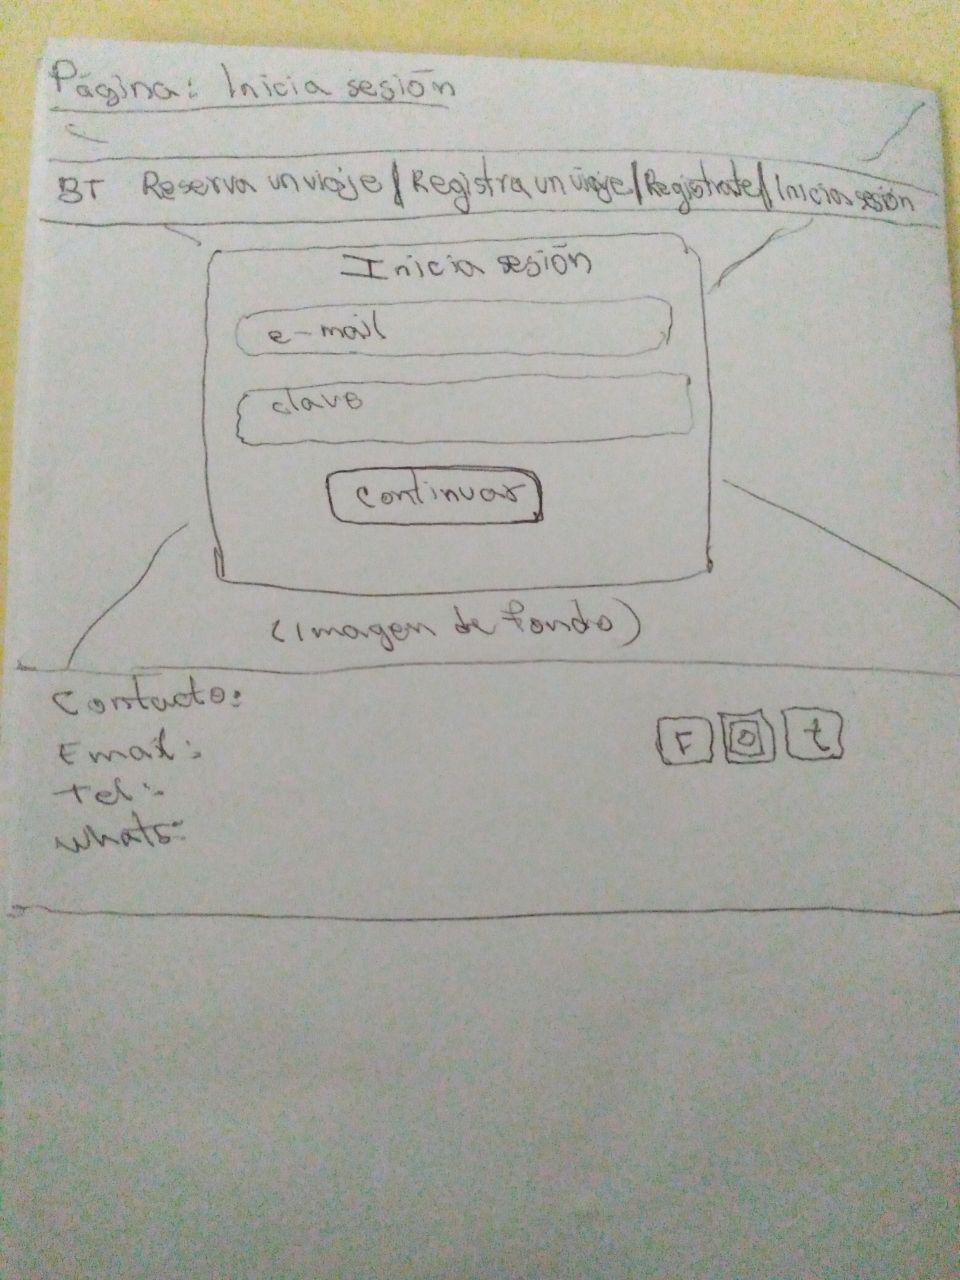 Página: Inicia sesión
BT Reserva un viaje / Registra un viaje / Registrate / Inicia sesión
Inicia sesión
e-mail
clave
continuar
(Imagen de fondo)
Contacto:
F O t
Email:
Tel:
Whats: